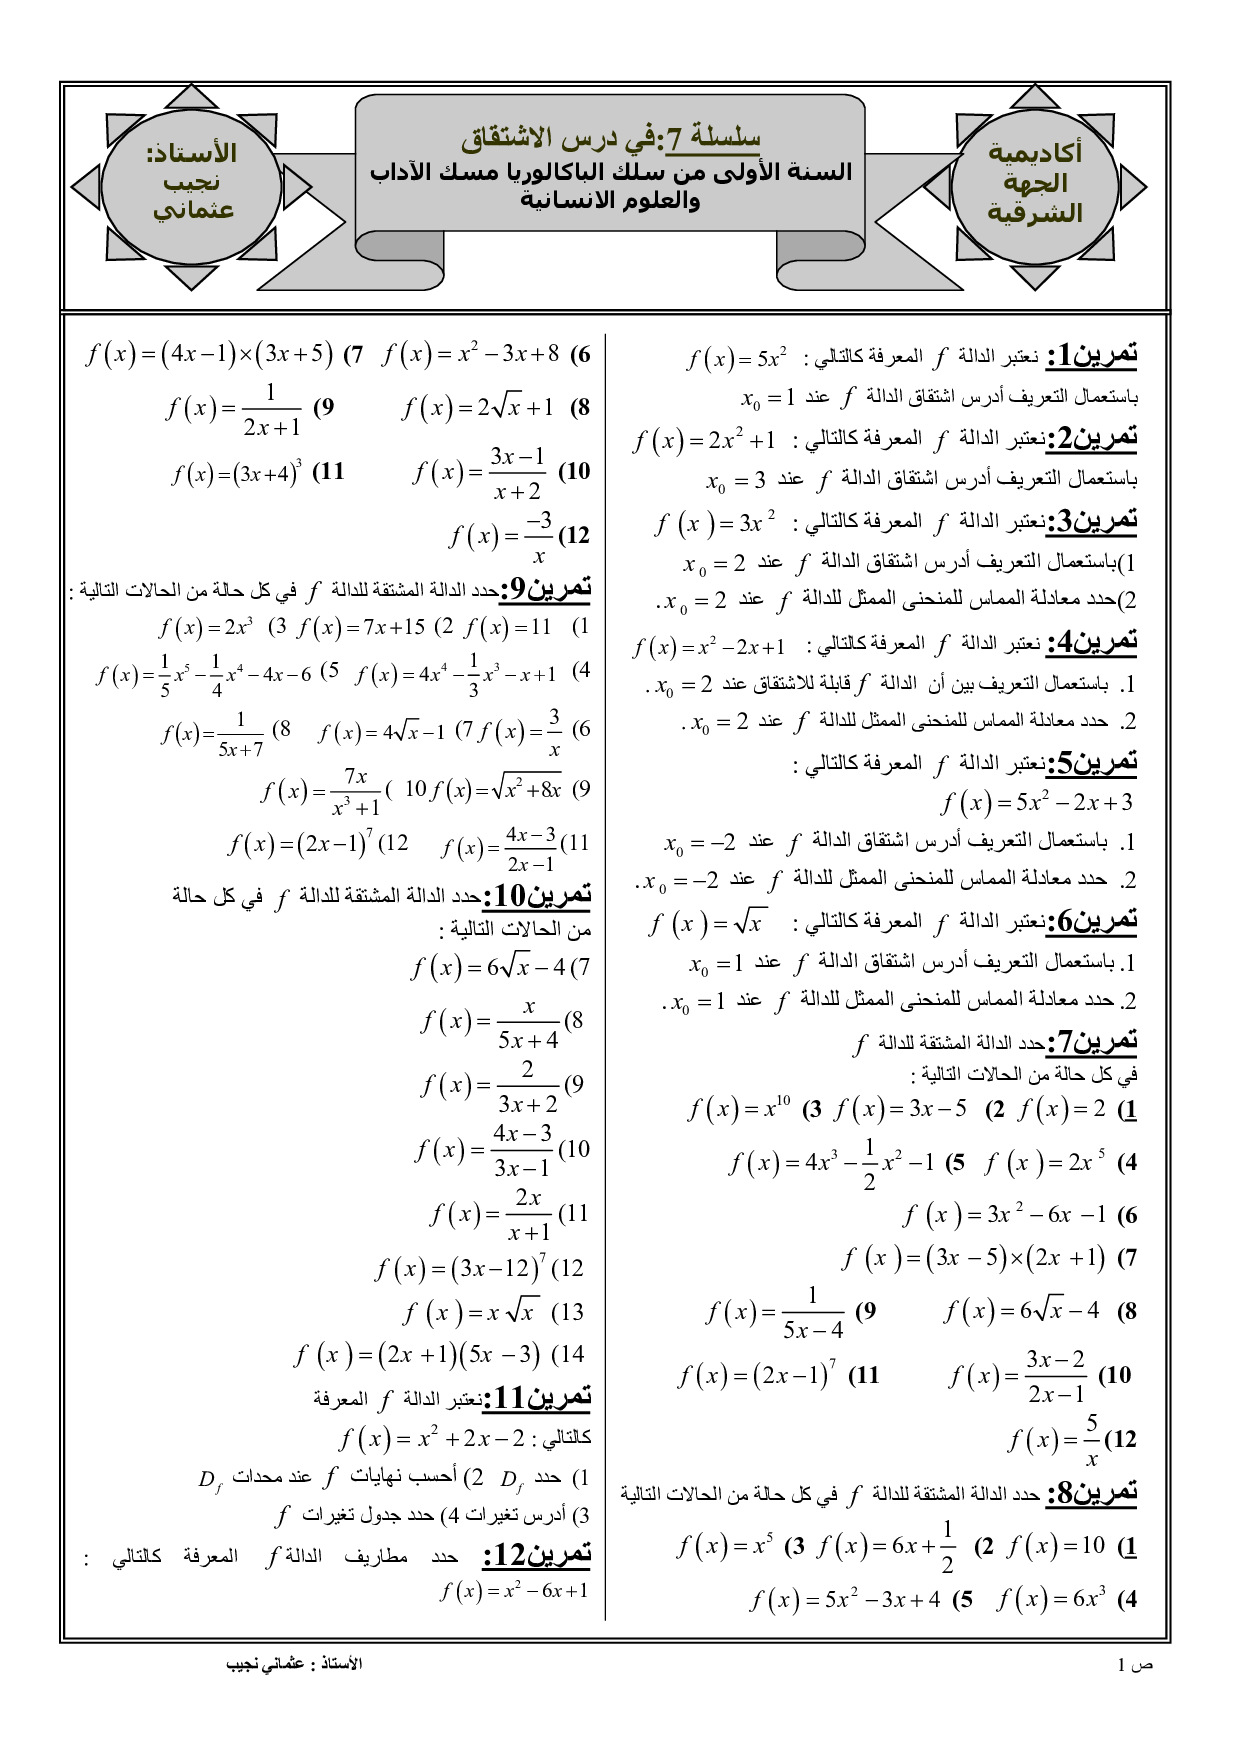 أكاديمية
الجهة
الشرقية
سلسلة 7:في درس الاشتقاق
السنة الأولى من سلك الباكالوريا مسك الآداب
والعلوم الانسانية
الأستاذ:
نجيب
عثماني
تمرين1: نعتبر الدالة f المعرفة كالتالي : f(x)=5x²
باستعمال التعريف أدرس اشتقاق الدالة f عند x₀=1
تمرين2:نعتبر الدالة f المعرفة كالتالي : f(x)=2x²+1
باستعمال التعريف أدرس اشتقاق الدالة f عند x₀=3
تمرين3:نعتبر الدالة f المعرفة كالتالي : f(x)=3x²
1)باستعمال التعريف أدرس اشتقاق الدالة f عند x₀=2
2)حدد معادلة المماس للمنحنى الممثل للدالة f عند x₀=2.
تمرين4: نعتبر الدالة f المعرفة كالتالي : f(x)=x²−2x+1
1. باستعمال التعريف بين أن الدالة f قابلة للاشتقاق عند x₀=2.
2. حدد معادلة المماس للمنحنى الممثل للدالة f عند x₀=2.
تمرين5:نعتبر الدالة f المعرفة كالتالي :
f(x)=5x²−2x+3
1. باستعمال التعريف أدرس اشتقاق الدالة f عند x₀=−2
2. حدد معادلة المماس للمنحنى الممثل للدالة f عند x₀=−2.
تمرين6:نعتبر الدالة f المعرفة كالتالي : f(x)=√x
1. باستعمال التعريف أدرس اشتقاق الدالة f عند x₀=1
2. حدد معادلة المماس للمنحنى الممثل للدالة f عند x₀=1.
تمرين7:حدد الدالة المشتقة للدالة f
في كل حالة من الحالات التالية :
1) f(x)=2 2) f(x)=3x−5 3) f(x)=x¹⁰
4) f(x)=2x⁵ 5) f(x)=4x³−1/2x²−1
6) f(x)=3x²−6x−1
7) f(x)=(3x−5)×(2x+1)
8) f(x)=6√x−4 9) f(x)=1/(5x−4)
10) f(x)=(3x−2)/(2x−1) 11) f(x)=(2x−1)⁷
12) f(x)=5/x
تمرين8: حدد الدالة المشتقة للدالة f في كل حالة من الحالات التالية
1) f(x)=10 2) f(x)=6x+1/2 3) f(x)=x⁵
4) f(x)=6x³ 5) f(x)=5x²−3x+4
6) f(x)=x²−3x+8 7) f(x)=(4x−1)×(3x+5)
8) f(x)=2√x+1 9) f(x)=1/(2x+1)
10) f(x)=(3x−1)/(x+2) 11) f(x)=(3x+4)³
12) f(x)=−3/x
تمرين9:حدد الدالة المشتقة للدالة f في كل حالة من الحالات التالية :
1) f(x)=11 2) f(x)=7x+15 3) f(x)=2x³
4) f(x)=4x⁴−1/3x³−x+1 5) f(x)=1/5x⁵−1/4x⁴−4x−6
6) f(x)=3/x 7) f(x)=4√x−1 8) f(x)=1/(5x+7)
9) f(x)=√(x²+8x) 10) f(x)=7x/(x³+1)
11) f(x)=(4x−3)/(2x−1) 12) f(x)=(2x−1)⁷
تمرين10:حدد الدالة المشتقة للدالة f في كل حالة
من الحالات التالية :
7) f(x)=6√x−4
8) f(x)=x/(5x+4)
9) f(x)=2/(3x+2)
10) f(x)=(4x−3)/(3x−1)
11) f(x)=2x/(x+1)
12) f(x)=(3x−12)⁷
13) f(x)=x√x
14) f(x)=(2x+1)(5x−3)
تمرين11:نعتبر الدالة f المعرفة
كالتالي : f(x)=x²+2x−2
1) حدد D_f 2) أحسب نهايات f عند محدات D_f
3) أدرس تغيرات f 4) حدد جدول تغيرات f
تمرين12: حدد مطاريف الدالة f المعرفة كالتالي :
f(x)=x²−6x+1
ص 1
الأستاذ : عثماني نجيب